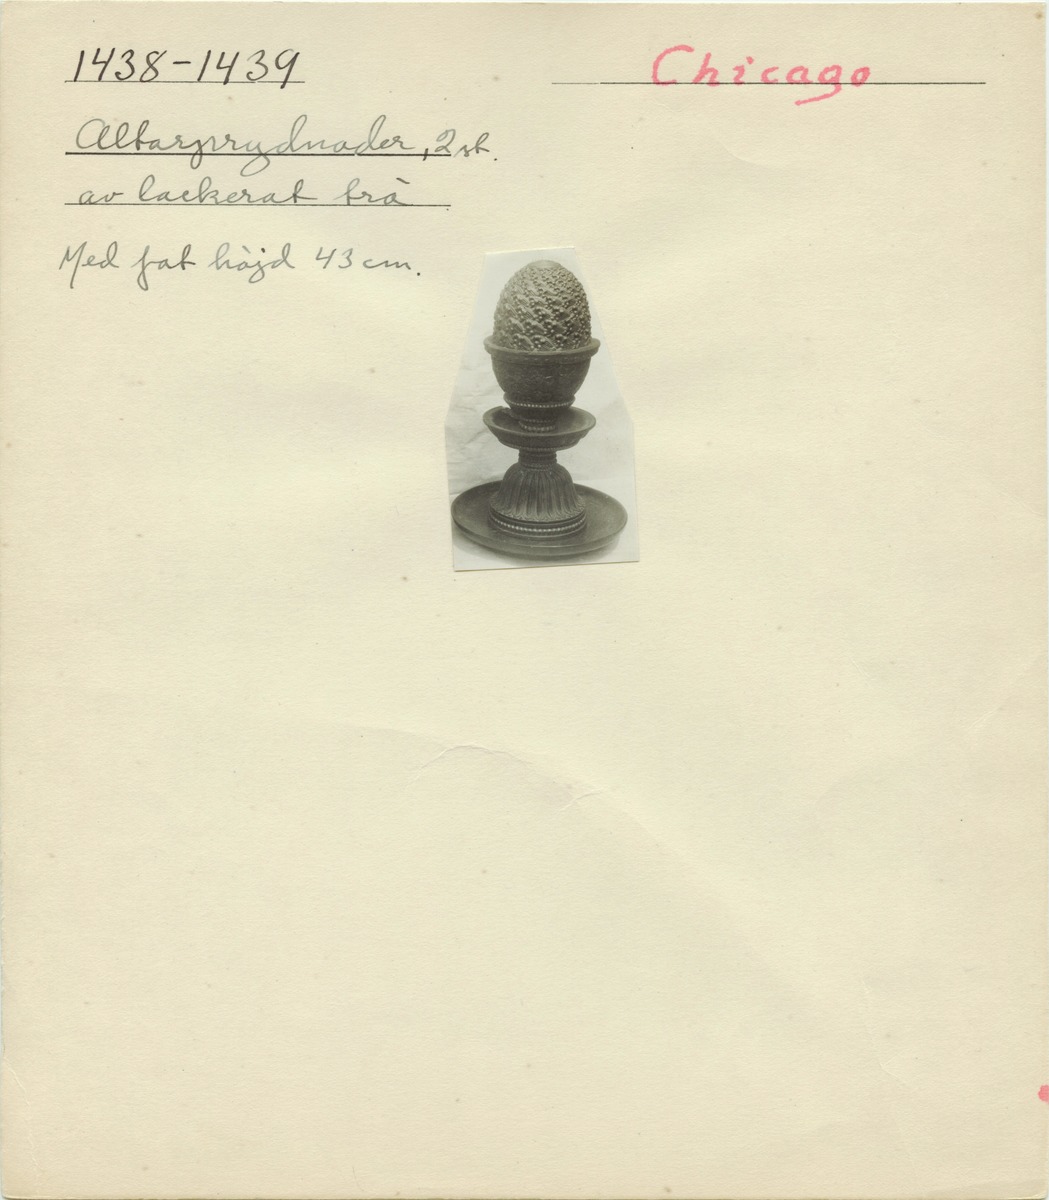 1438-1439
Chicago
Altarprydnader, 2 st.
av lackerat trä
Med fat höjd 43 cm.